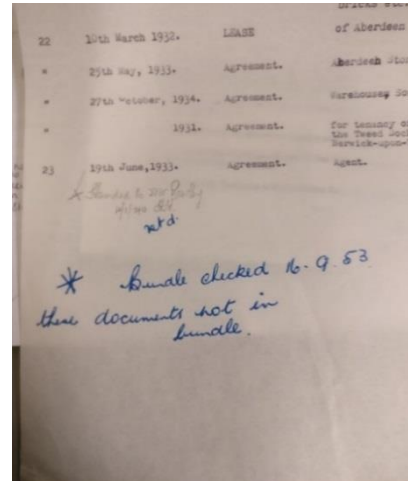 of Aberdeen
22 19th March 1932. LEASE
" 25th May, 1933. Agreement. Aberdeen
" 27th October, 1934. Agreement. Warehouses
" 1931. Agreement. for tenancy
the Tweed Doc
Berwick-upon-
23 19th June, 1933. Agreement. Agent.
ret d.
* Bundle checked 16.9.53
these documents not in
bundle.